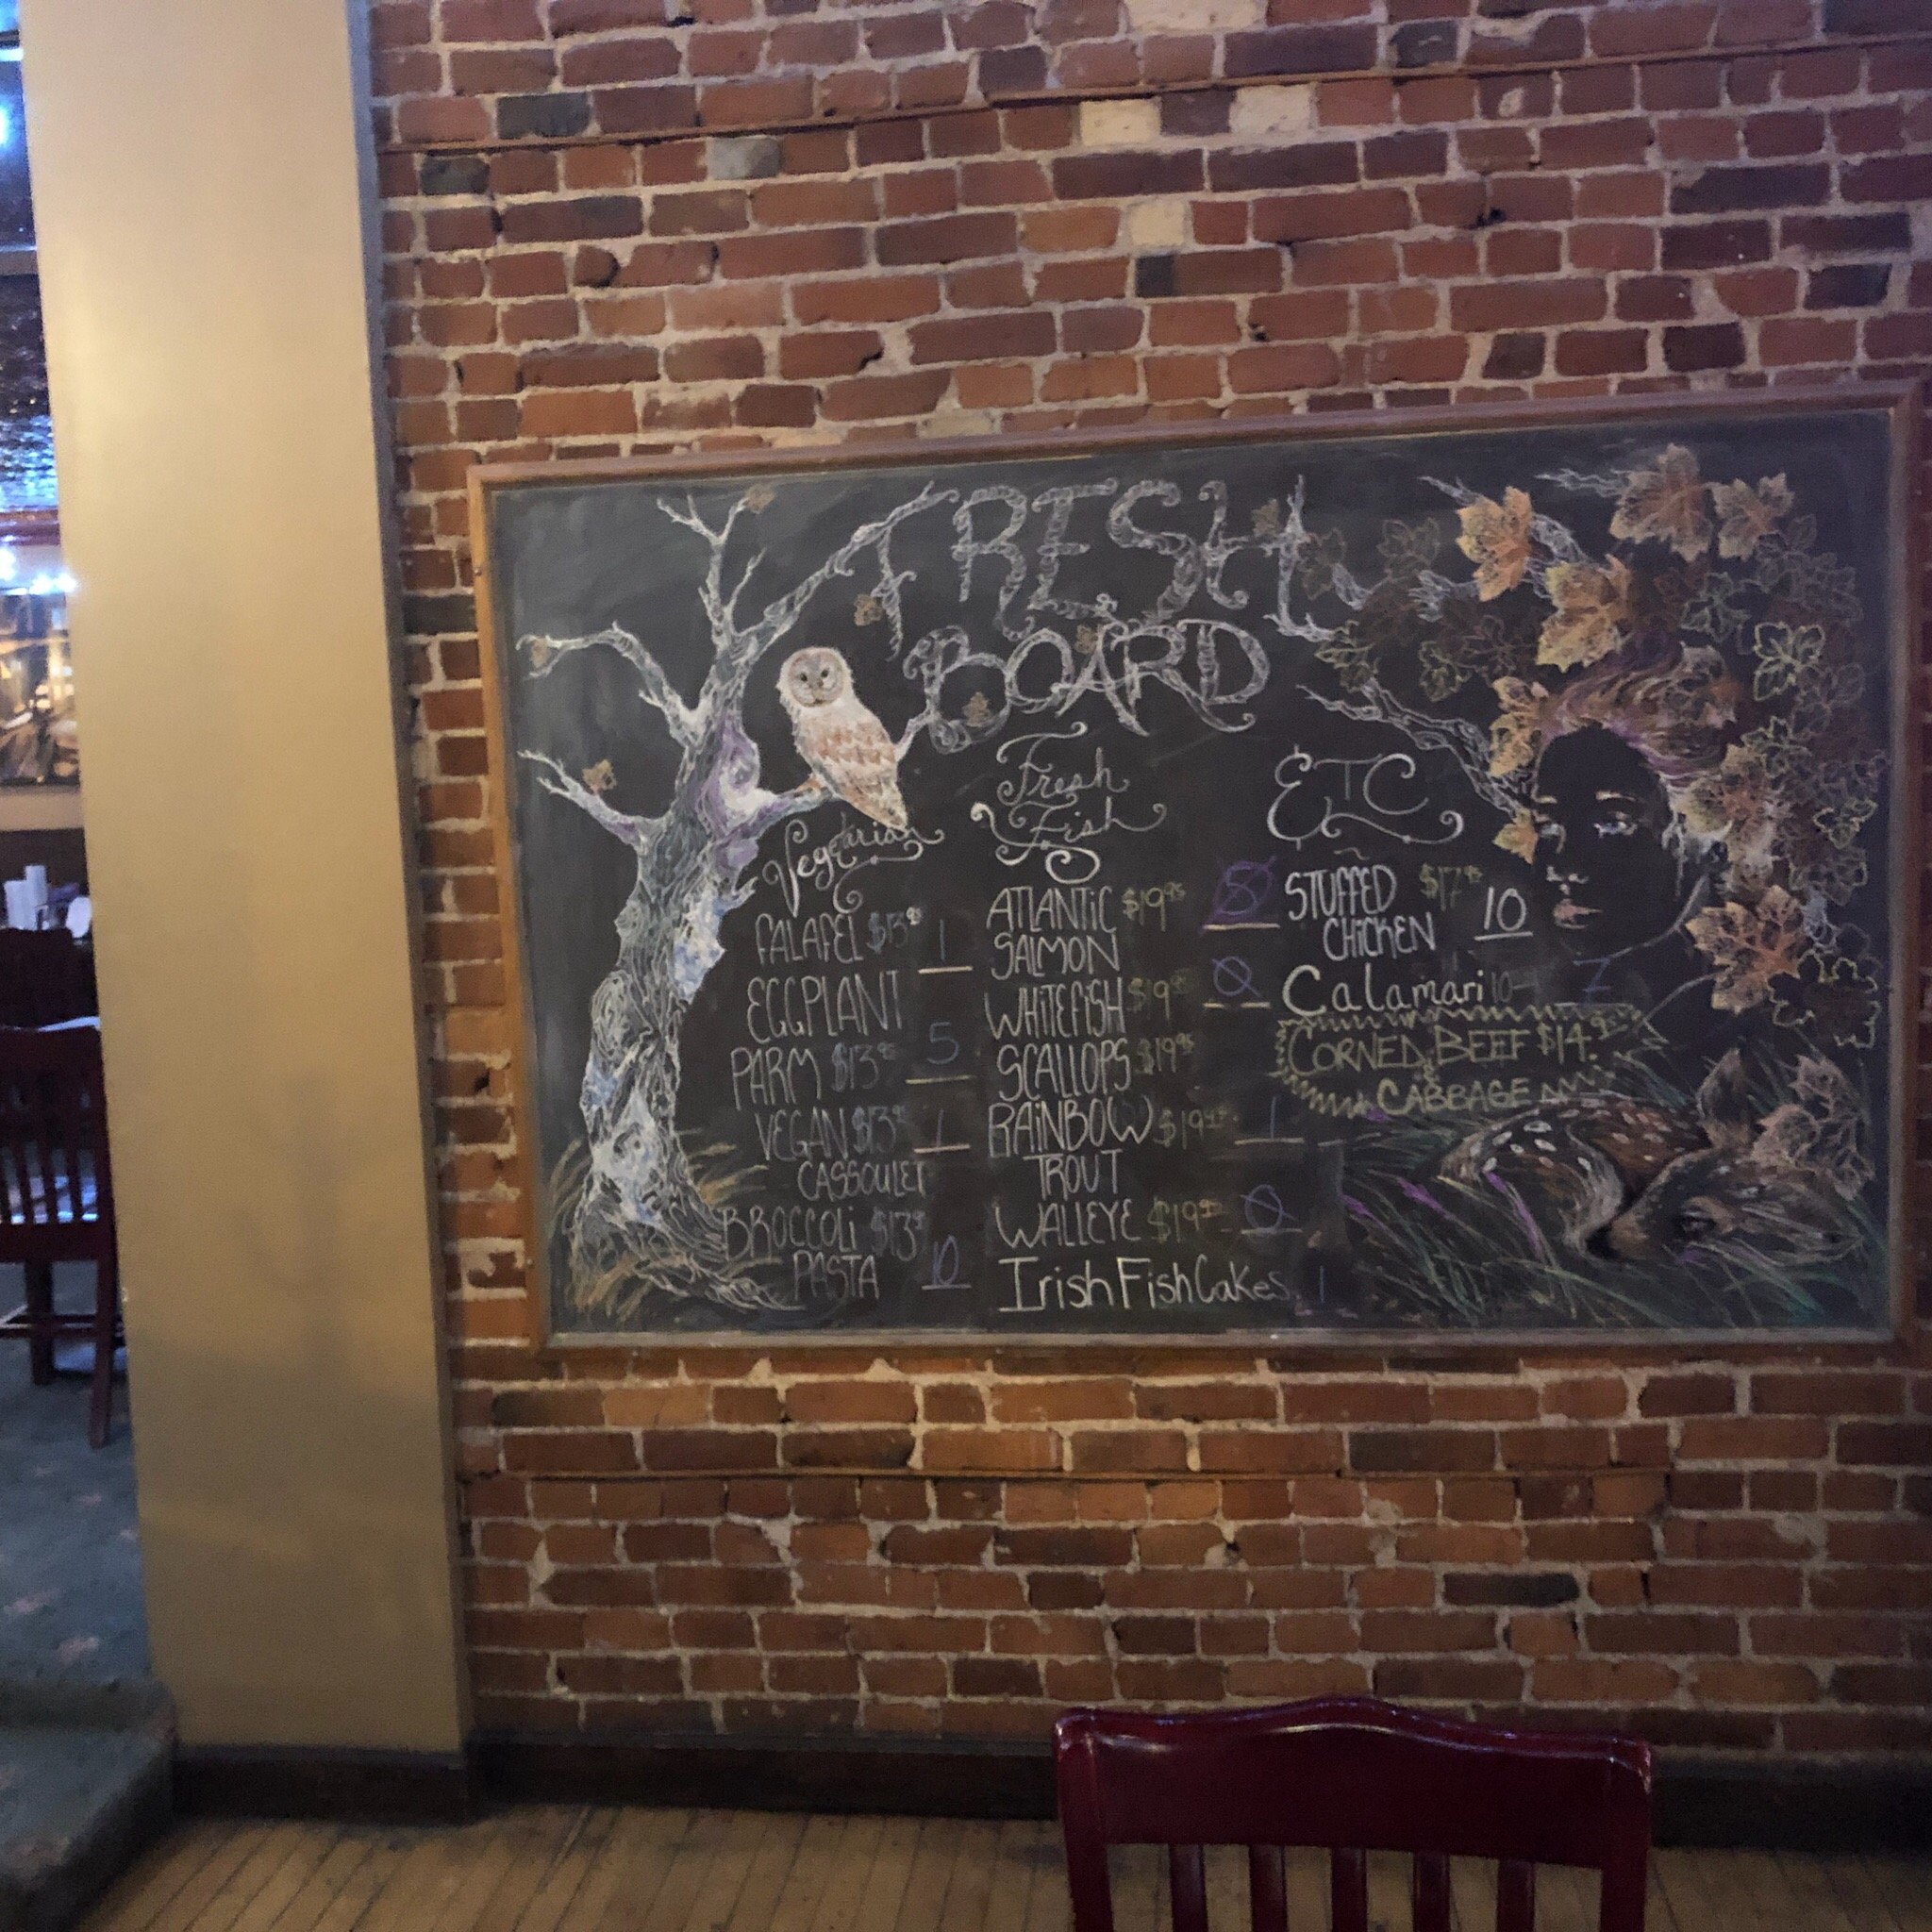 FRESH
BOARD
Vegetarian
FALAFEL $13.95 1
EGGPLANT
PARM $13.95 5
VEGAN $13.95 1
CASSOULET
BROCCOLI $13.95
PASTA 10
Fresh
Fish
ATLANTIC $19.95
SALMON
WHITEFISH $19.95 0
SCALLOPS $19.95
RAINBOW $19.95 1
TROUT
WALLEYE $19.95 0
Irish Fish Cakes 1
ETC
STUFFED $17.95
CHICKEN 10
Calamari 10 7
CORNED BEEF $14.95
& CABBAGE